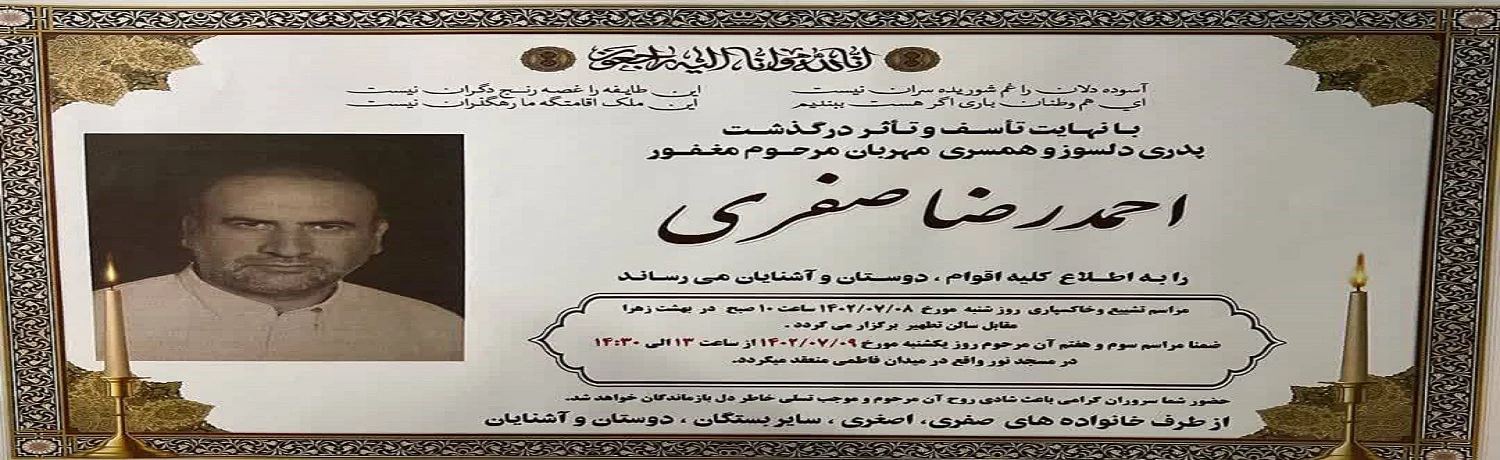 انا لله و انا الیه راجعون
آسوده دلان را غم شوریده سران نیست این طایفه را غصه رنج دگران نیست
ای هم وطنان باری اگر هست ببندیم این ملک اقامتگه ما رهگذران نیست
با نهایت تأسف و تأثر درگذشت
پدری دلسوز و همسری مهربان مرحوم مغفور
احمدرضا صفری
را به اطلاع کلیه اقوام ، دوستان و آشنایان می رساند
مراسم تشییع وخاکسپاری روز شنبه مورخ ۱۴۰۲/۰۷/۰۸ ساعت ۱۰ صبح در بهشت زهرا
مقابل سالن تطهیر برگزار می گردد .
ضمنا مراسم سوم و هفتم آن مرحوم روز یکشنبه مورخ ۱۴۰۲/۰۷/۰۹ از ساعت ۱۳ الی ۱۴:۳۰
در مسجد نور واقع در میدان فاطمی منعقد میگردد.
حضور شما سروران گرامی باعث شادی روح آن مرحوم و موجب تسلی خاطر دل بازماندگان خواهد شد.
از طرف خانواده های صفری، اصغری ، سایر بستگان ، دوستان و آشنایان